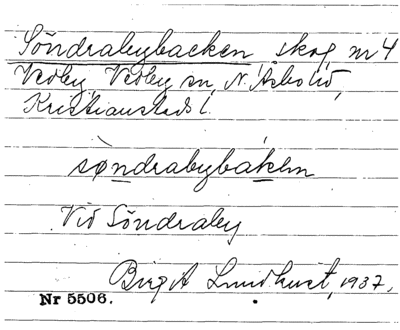 Söndrabybacken skog, nr 4
Vedby, Vedby sn, N. Åsbo hd,
Kristianstads l.
sǿndrabybakən
Vid Söndraby
Birg A Lundkvist, 1937.
Nr 5506.